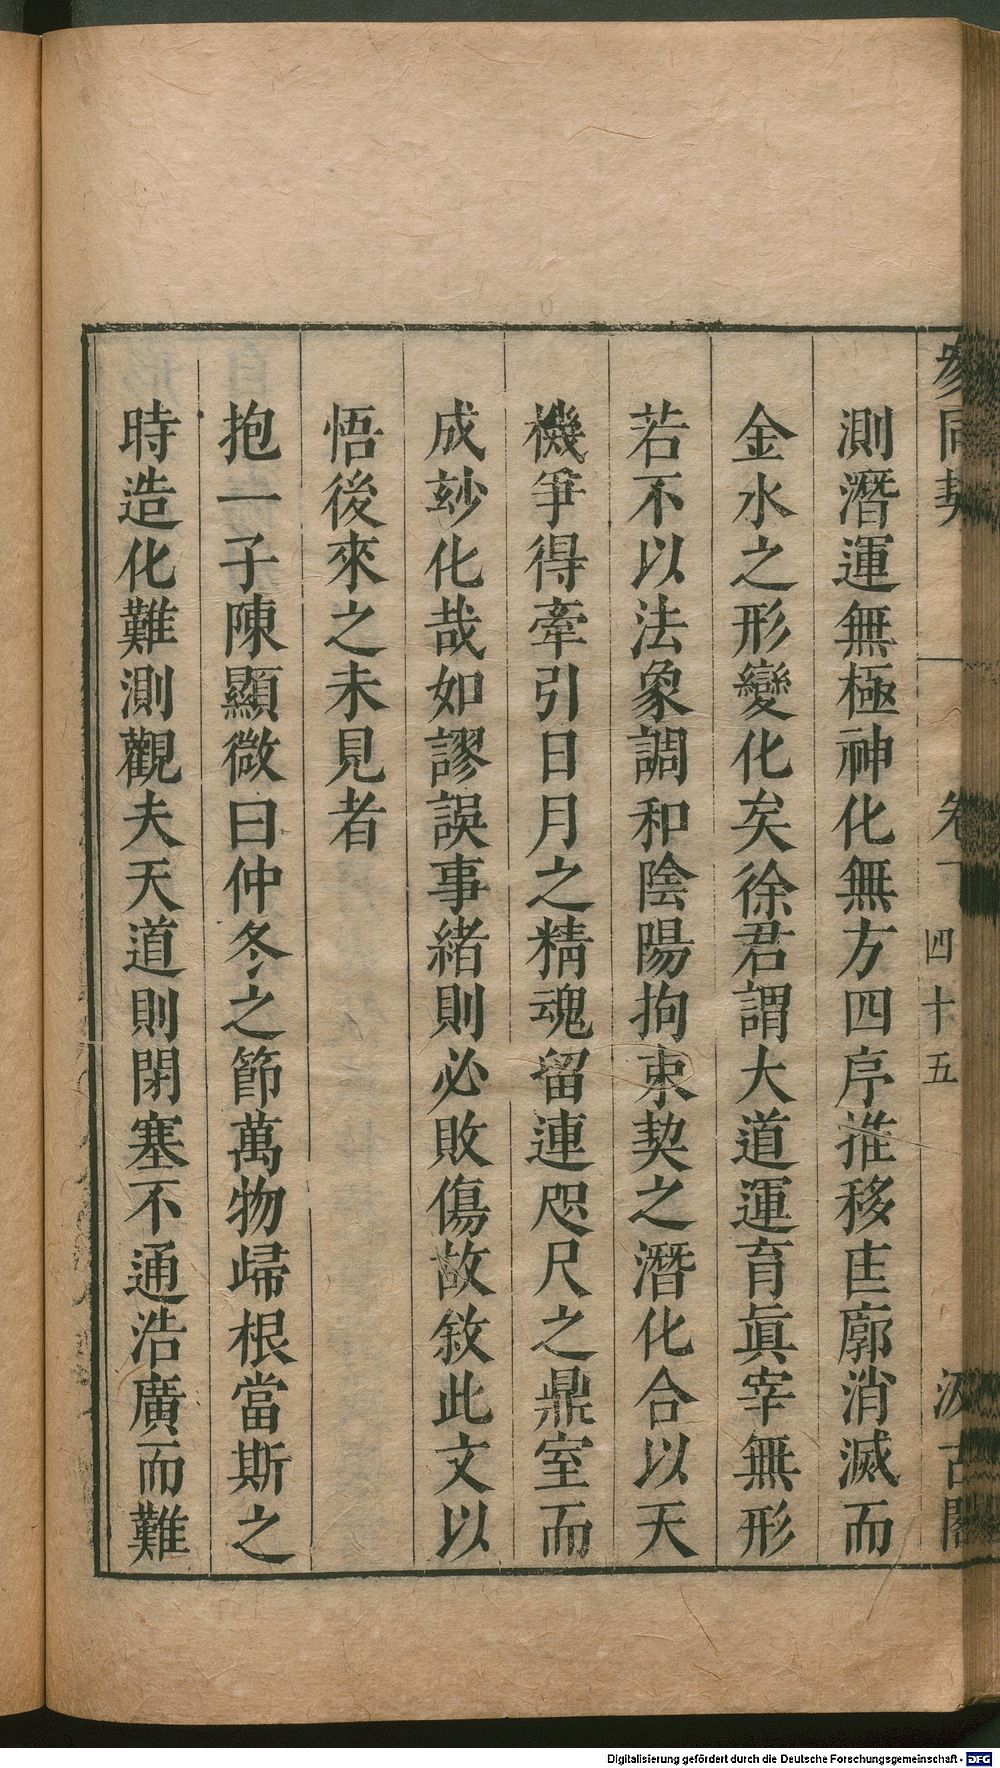 參同契 卷下 四十五 汲古閣
測潛運無極神化無方四序推移匡廓消滅而
金水之形變化矣徐君謂大道運育眞宰無形
若不以法象調和陰陽拘束契之潛化合以天
機爭得牽引日月之精魂留連咫尺之鼎室而
成玅化哉如謬誤事緒則必敗傷故敘此文以
悟後來之未見者
抱一子陳顯微曰仲冬之節萬物歸根當斯之
時造化難測觀夫天道則閉塞不通浩廣而難
Digitalisierung gefördert durch die Deutsche Forschungsgemeinschaft - DFG